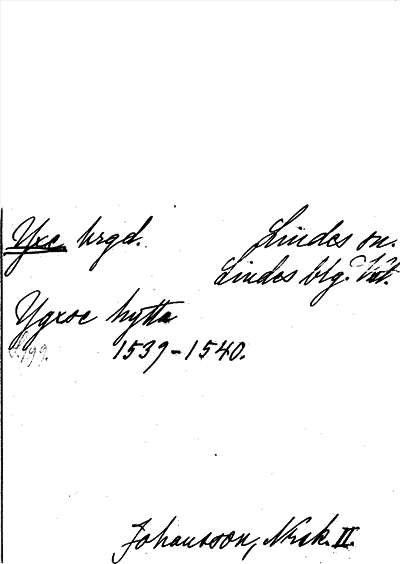 Yxe hrgd. Lindes sn.
Lindes blg.
Ygxoe hytta
1539-1540.
Johansson, Nrsk. II.